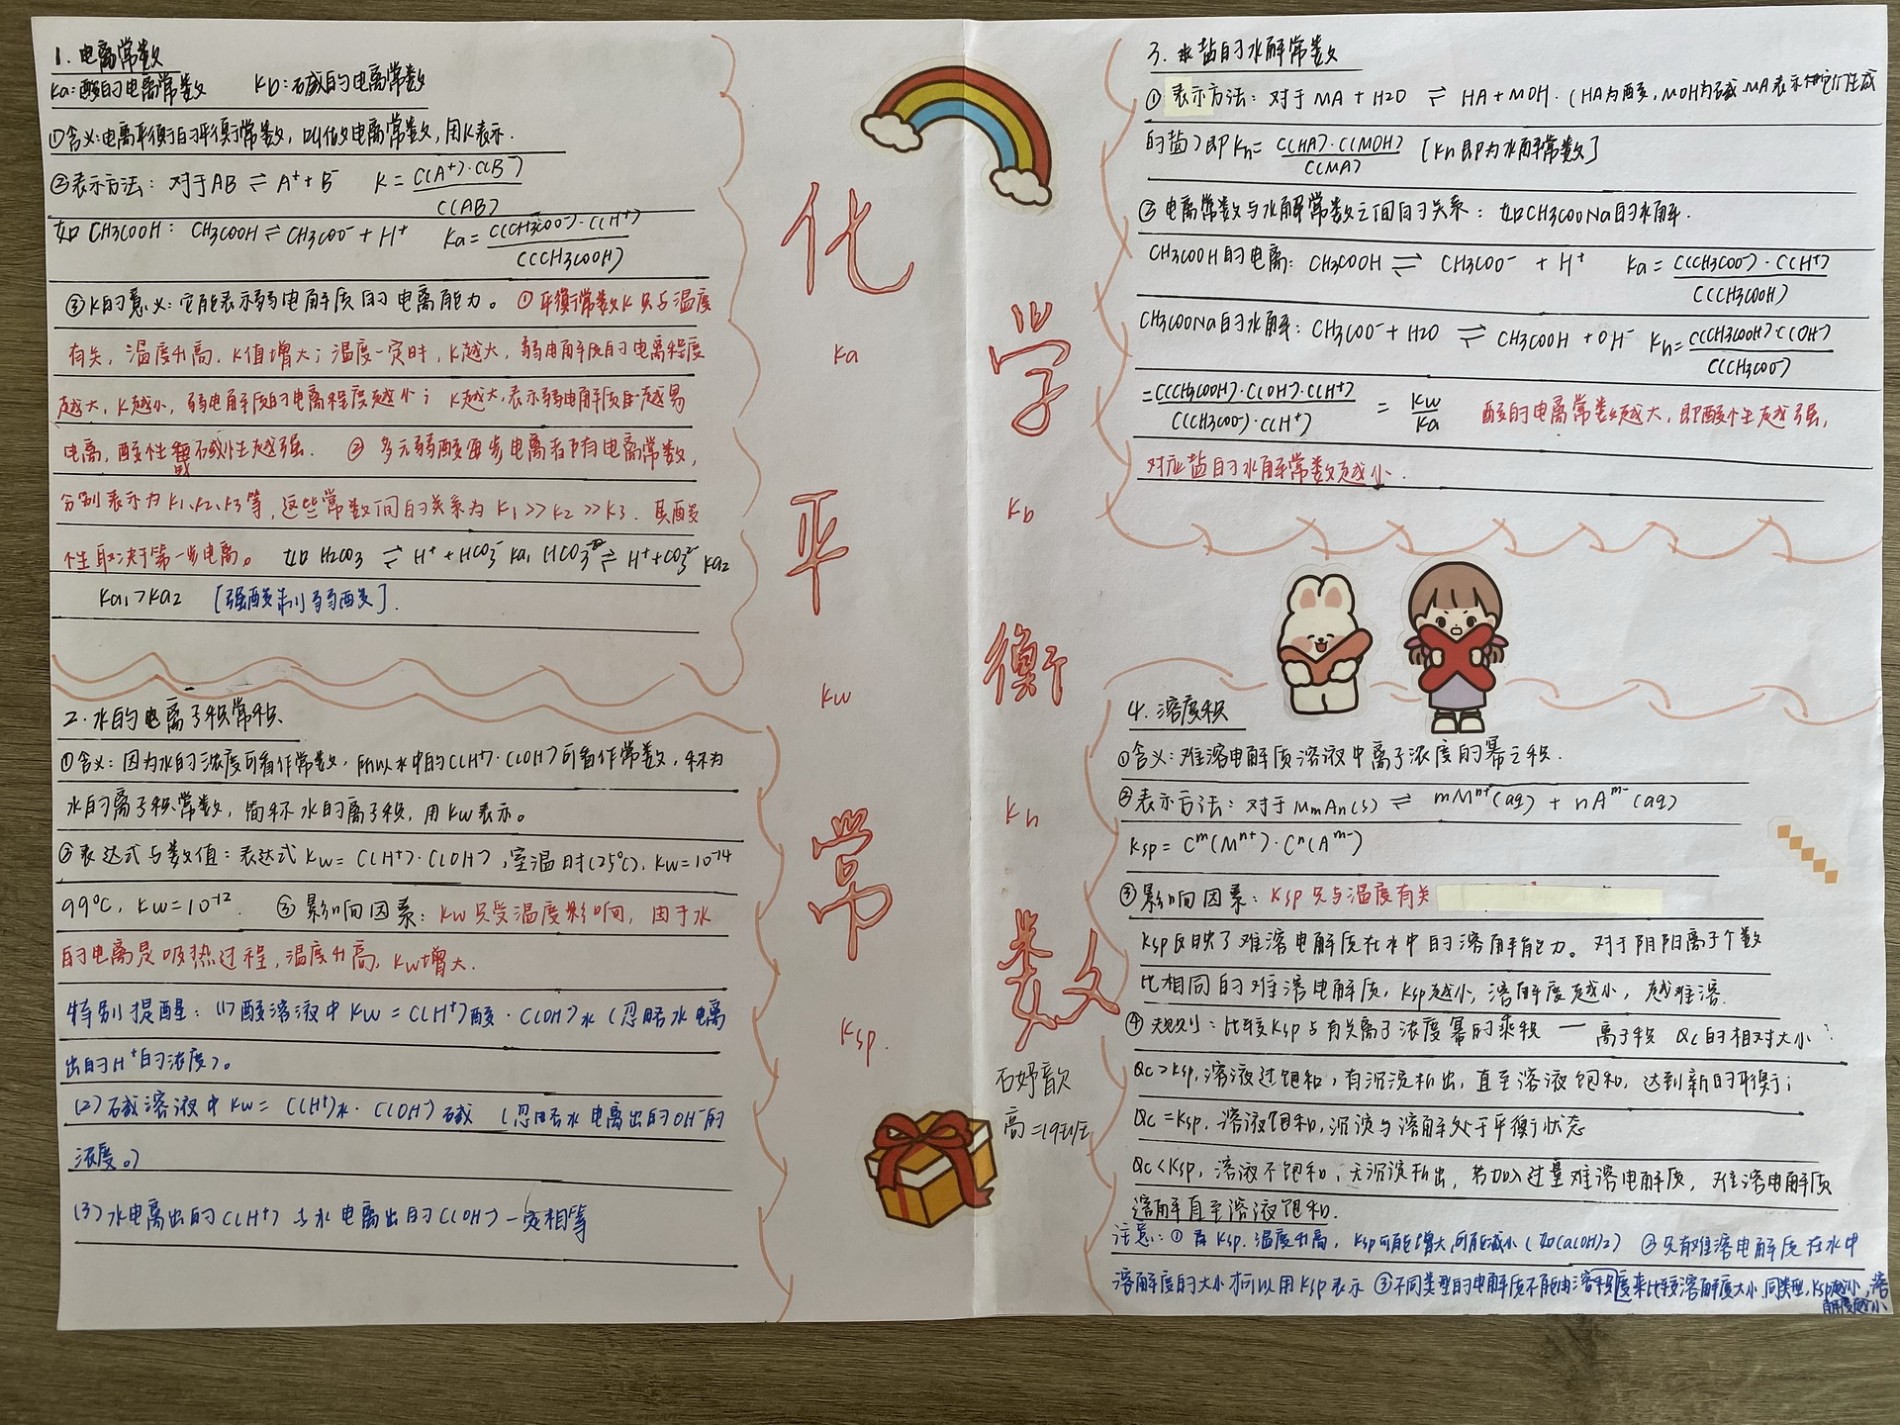 1. 电离常数
Ka:酸的电离常数 Kb:碱的电离常数
①含义:电离平衡的平衡常数,叫做电离常数,用K表示.
②表示方法:对于AB ⇌ A⁺+B⁻ K = C(A⁺)·C(B⁻)
C(AB)
如 CH3COOH: CH3COOH ⇌ CH3COO⁻ + H⁺ Ka = C(CH3COO⁻)·C(H⁺)
C(CH3COOH)
③K的意义:它能表示弱电解质的电离能力。①平衡常数K只与温度
有关,温度升高,K值增大;温度一定时,K越大,弱电解质的电离程度
越大,K越小,弱电解质的电离程度越小;K越大,表示弱电解质越易
电离,酸性或碱性越强. ②多元弱酸每步电离都有电离常数,
分别表示为K1、K2、K3等,这些常数间的关系为K1>>K2>>K3.其酸
性取决于第一步电离。如 H2CO3 ⇌ H⁺+HCO3⁻ Ka1 HCO3⁻ ⇌ H⁺+CO3²⁻ Ka2
Ka1>Ka2 [强酸制弱酸].
2.水的电离子积常积
①含义:因为水的浓度可看作常数,所以水中的C(H⁺)·C(OH⁻)可看作常数,称为
水的离子积常数,简称水的离子积,用Kw表示。
②表达式与数值:表达式Kw= C(H⁺)·C(OH⁻),室温时(25℃),Kw=10⁻¹⁴
99℃, Kw=10⁻¹². ③影响因素:Kw只受温度影响,由于水
的电离是吸热过程,温度升高,Kw增大.
特别提醒:(1)酸溶液中Kw=C(H⁺)酸·C(OH⁻)水(忽略水电离
出的H⁺的浓度)。
(2)碱溶液中Kw= C(H⁺)水·C(OH⁻)碱 (忽略水电离出的OH⁻的
浓度。)
(3)水电离出的C(H⁺)与水电离出的C(OH⁻)一定相等
化
学
平
衡
常
数
Ka
Kb
Kw
Kh
Ksp.
石妤歆
高二19班
3. 盐的水解常数
①表示方法:对于MA+H2O ⇌ HA+MOH.(HA为酸,MOH为碱.MA表示他们生成
的盐)即Kh= C(HA)·C(MOH) [Kh即为水解常数]
C(MA)
②电离常数与水解常数之间的关系:如CH3COONa的水解.
CH3COOH的电离:CH3COOH ⇌ CH3COO⁻ + H⁺ Ka = C(CH3COO⁻)·C(H⁺)
C(CH3COOH)
CH3COONa的水解:CH3COO⁻+H2O ⇌ CH3COOH+OH⁻ Kh= C(CH3COOH)·C(OH⁻)
C(CH3COO⁻)
= C(CH3COOH)·C(OH⁻)·C(H⁺) = Kw 酸的电离常数越大,即酸性越强,
C(CH3COO⁻)·C(H⁺) Ka
对应盐的水解常数越小.
4.溶度积
①含义:难溶电解质溶液中离子浓度的幂之积.
②表示方法:对于MmAn(s) ⇌ mMⁿ⁺(aq) + nAᵐ⁻(aq)
Ksp= Cᵐ(Mⁿ⁺)·Cⁿ(Aᵐ⁻)
③影响因素:Ksp只与温度有关
Ksp反映了难溶电解质在水中的溶解能力。对于阴阳离子个数
比相同的难溶电解质,Ksp越小,溶解度越小,越难溶.
④规则:比较Ksp与有关离子浓度幂的乘积 — 离子积 Qc的相对大小:
Qc>Ksp,溶液过饱和,有沉淀析出,直至溶液饱和,达到新的平衡;
Qc=Ksp.溶液饱和,沉淀与溶解处于平衡状态
Qc<Ksp,溶液不饱和,无沉淀析出,若加入过量难溶电解质,难溶电解质
溶解直至溶液饱和.
注意:① Ksp.温度升高,Ksp可能增大,可能减小(如Ca(OH)2) ②只有难溶电解质在水中
溶解度的大小才可以用Ksp表示 ③不同类型的电解质不能由溶积度来比较溶解度大小.同类型,Ksp越小,溶
解度越小